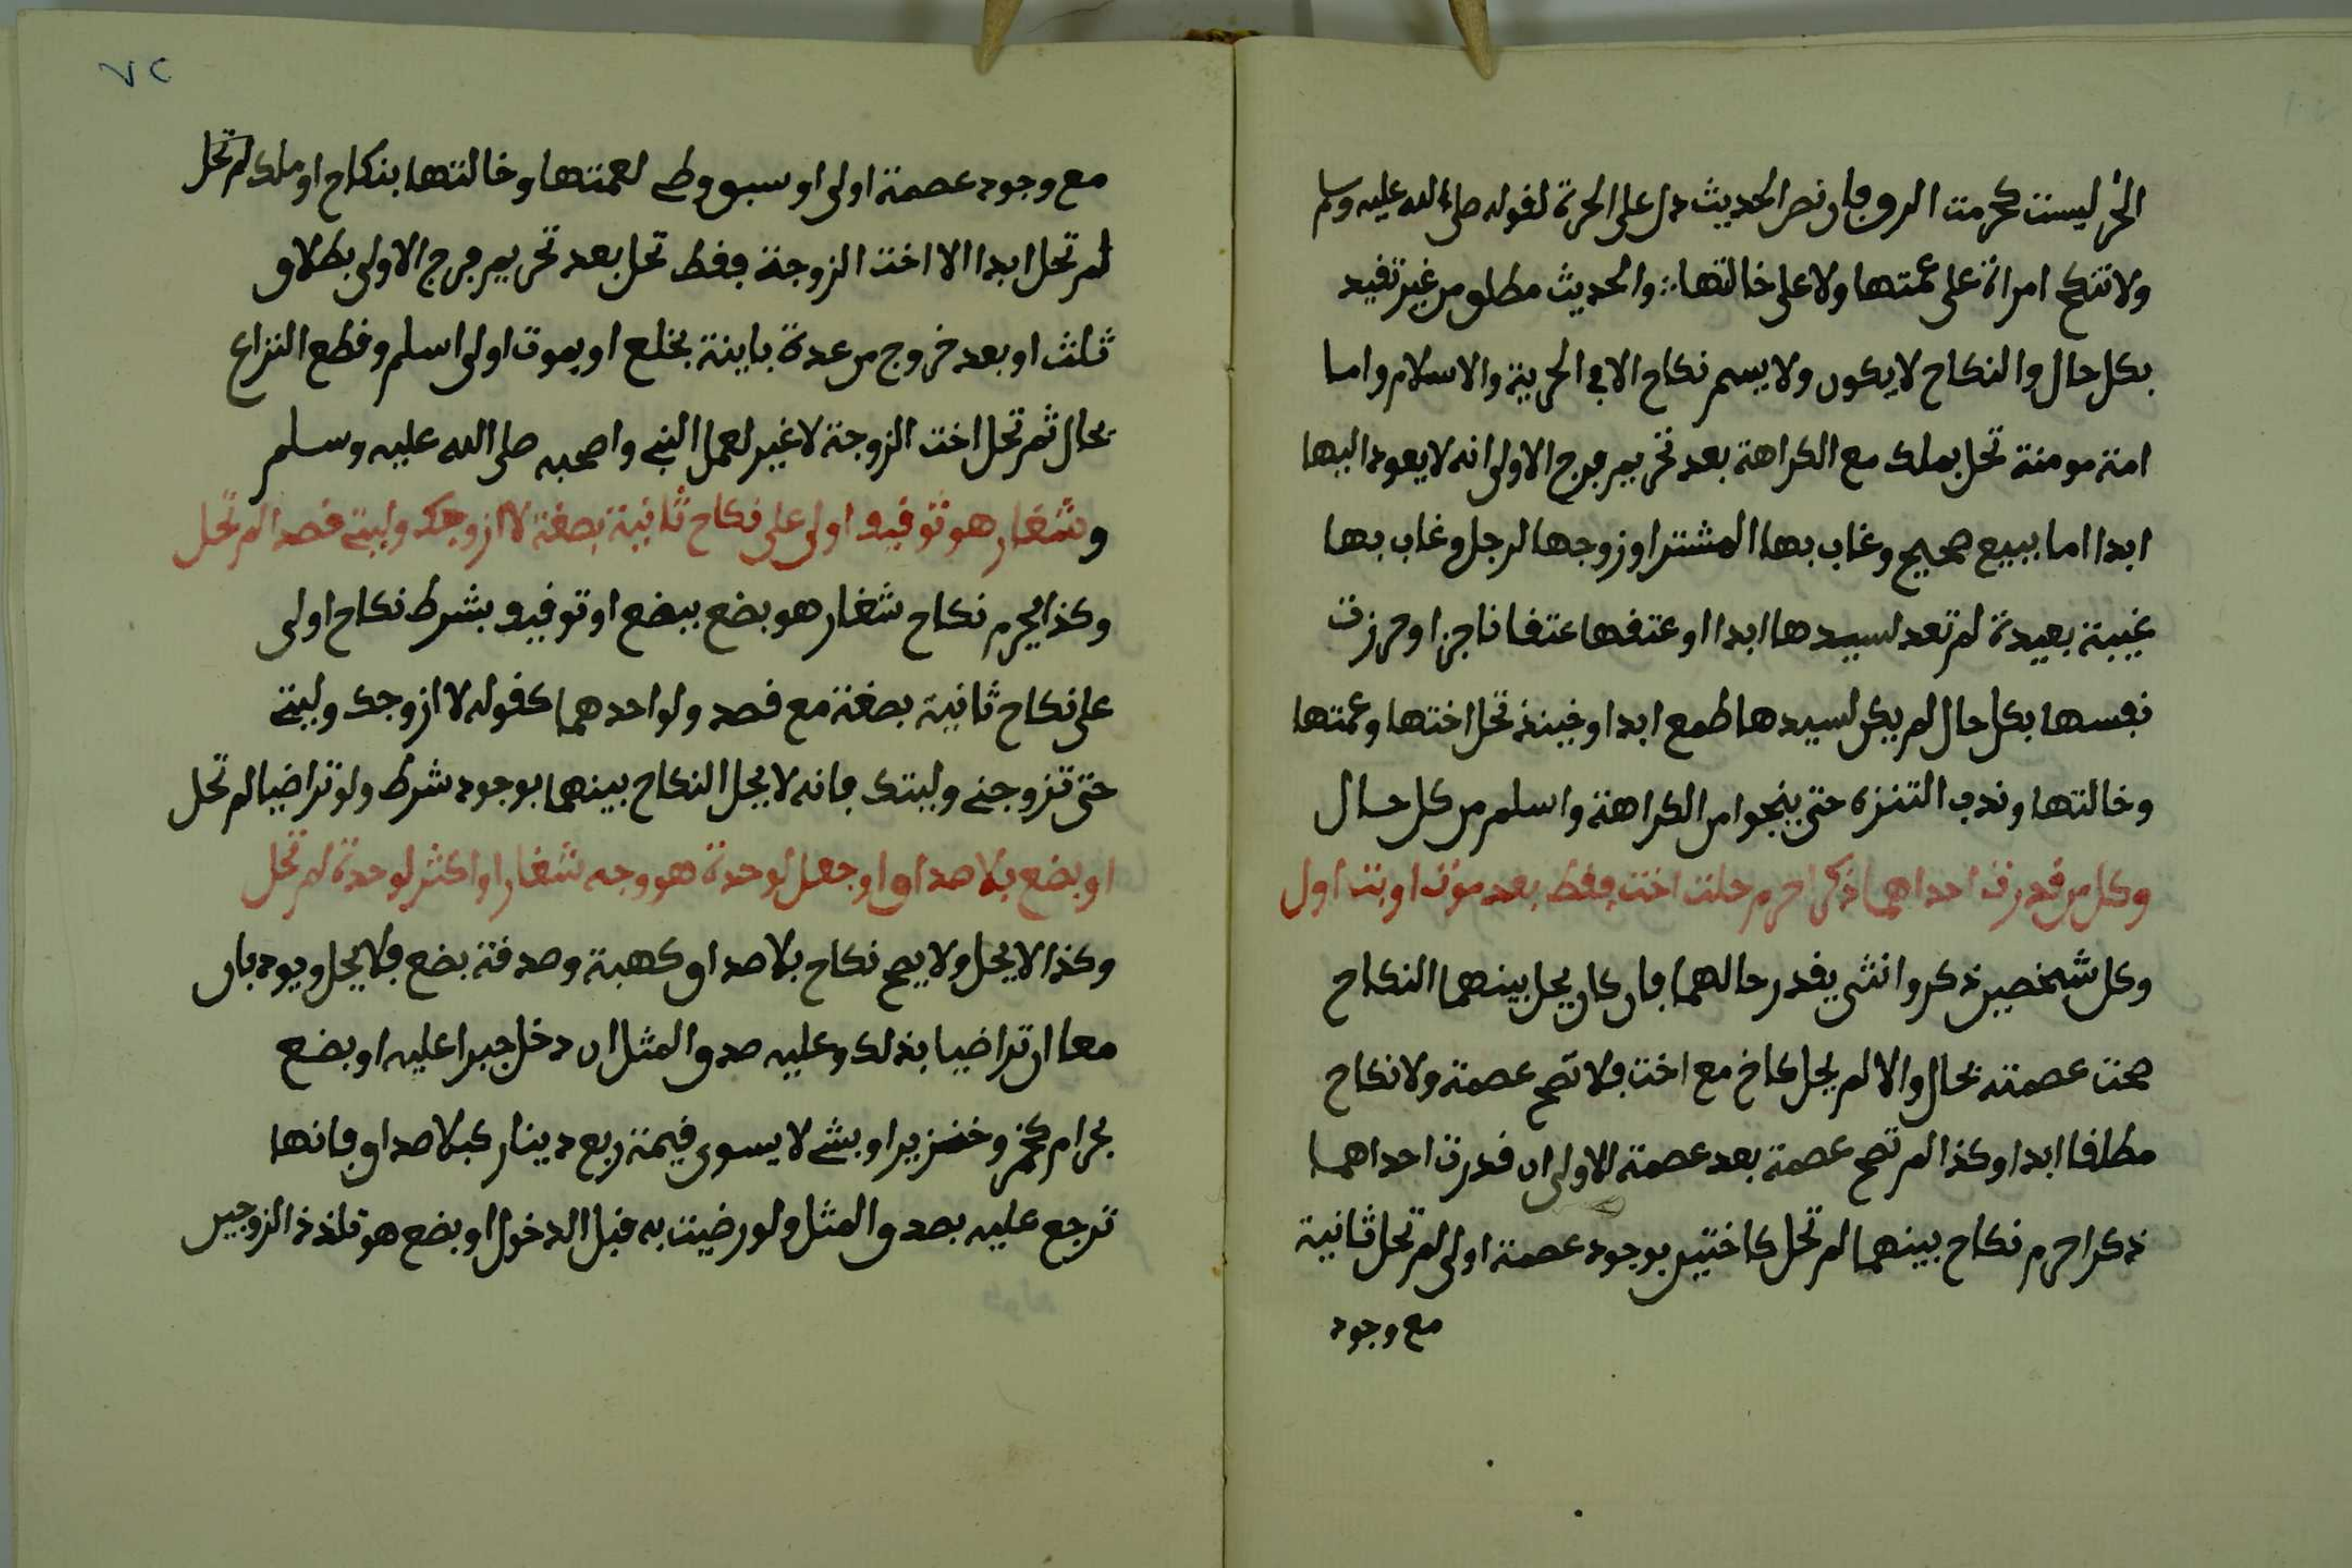 الحر ليست كحرمت الرو فان نص الحديث دل على الحرة لقوله صلى الله عليه وسلم
ولا تنكح امراة على عمتها ولا على خالتها: والحديث مطلق من غير تقيد
بكل حال والنكاح لا يكون ولا يسمر نكاح الا في الحرية والاسلام واما
امة مومنة تحل بملك مع الكراهة بعد تحريم فرج الاولى انه لا يعود اليها
ابدا اما ببيع صحيح وغاب بها المشترا وزوجها لرجل وغاب بها
غيبة بعيدة لم تعد لسيدها ابدا او عتقها عتقا ناجزا او حرزت
نفسها بكل حال لم يكن لسيدها طمع ابدا وحينئذ تحل اختها وعمتها
وخالتها وندب التنزه حتى ينجوا من الكراهة واسلم من كل حال
وكل من قدرت احداهما ذكرا حرم حلت اخت فقط بعد موت او بت اول
وكل شخصين ذكر وانثى يقدر حالهما فان كان يحل بينهما النكاح
صحت عصمته بحال والا لم يحل كاخ مع اخت فلا تصح عصمة ولا نكاح
مطلقا ابدا وكذا لم تصح عصمة بعد عصمة الاولى ان قدرت احداهما
ذكرا حرم نكاح بينهما لم تحل كاختين بوجود عصمة اولى لم تحل ثانية
مع وجود
٧٢
مع وجود عصمة اولى او سبق وطء لعمتها وخالتها بنكاح او ملك لم تحل
لم تحل ابدا الا اخت الزوجة فقط تحل بعد تحريم فرج الاولى بطلاق
ثلث او بعد خروج من عدة باينة بخلع او بموت اولى اسلم وقطع النزاع
بحال ثم تحل اخت الزوجة لا غير لعمل النبي واصحبه صلى الله عليه وسلم
وشغار هو توقيف اولى على نكاح ثانية بصغة لا ازوجك وليتي قصدا لم تحل
وكذا يحرم نكاح شغار هو بضع ببضع او توقيف بشرط نكاح اولى
على نكاح ثانية بصغة مع قصد ولو احدهما كقوله لا ازوجك وليتي
حتى تزوجني وليتك فانه لا يحل النكاح بينهما بوجود شرط ولو تراضيا لم تحل
او بضع بلا صداق او جعل لوحدة هو وجه شغار او اكثر لوحدة لم تحل
وكذا لا يحل ولا يصح نكاح بلا صداق كهبة وصدقة بضع فلا يحل ويودبان
معا ان تراضيا بذلك وعليه صدق المثل ان دخل جبرا عليه او بضع
بحرام كخمر وخنزير او بشئ لا يسوى قيمة ربع دينار كبلا صداق فانها
ترجع عليه بصدق المثل ولو رضيت به قبل الدخول او بضع هو تلذذ الزوجين